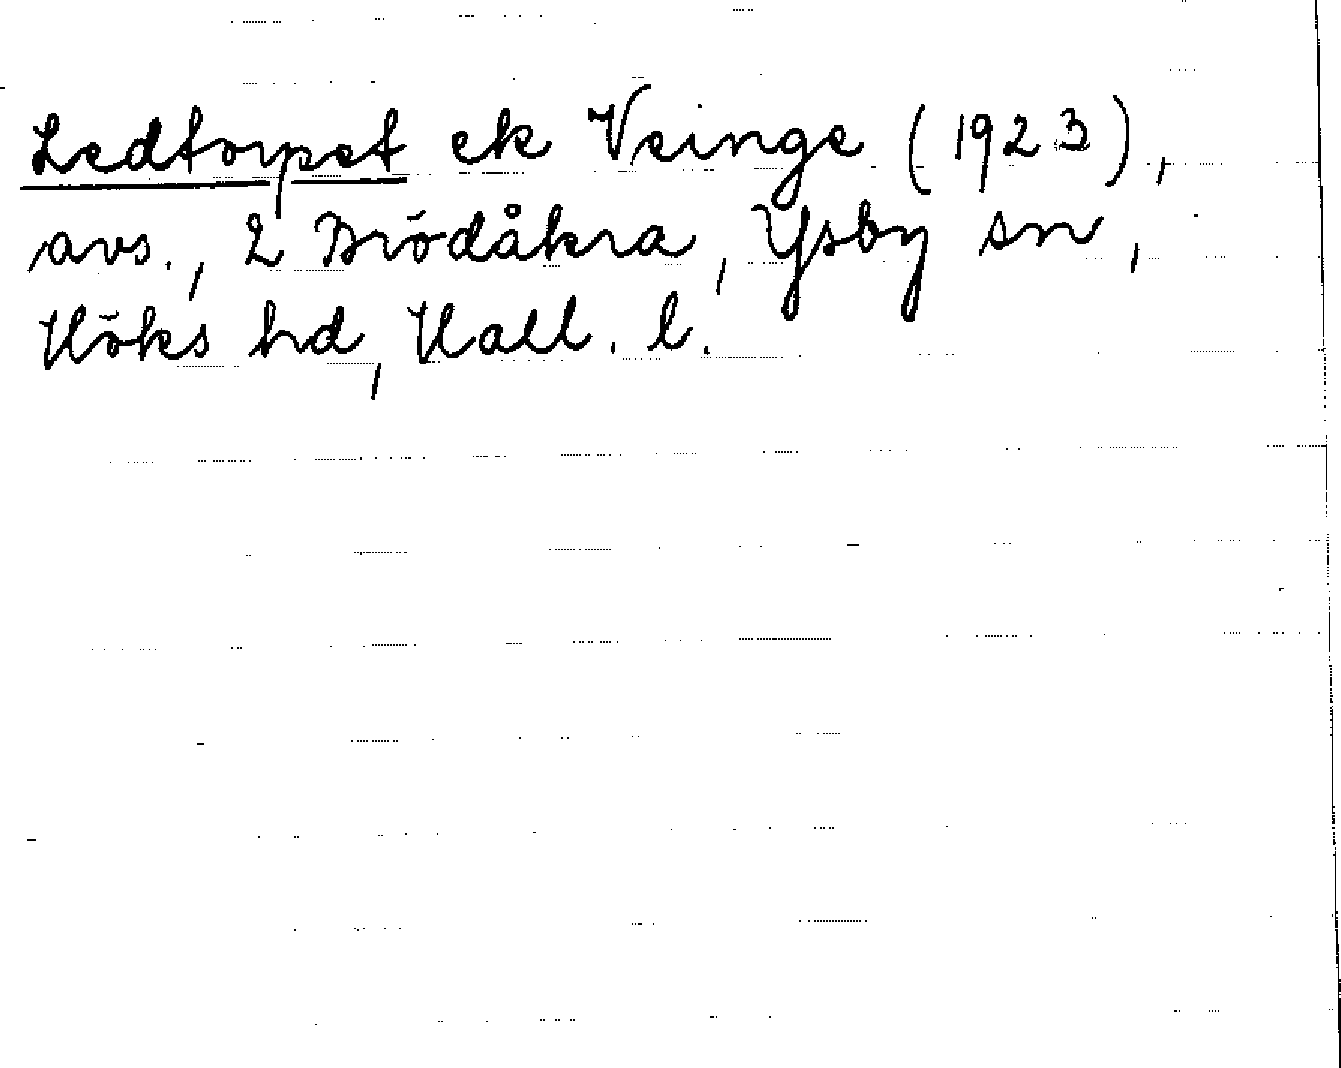 Ledtorpet ek Veinge (1923),
avs., 2 Brödåkra, Ysby sn,
Höks hd, Hall. l.